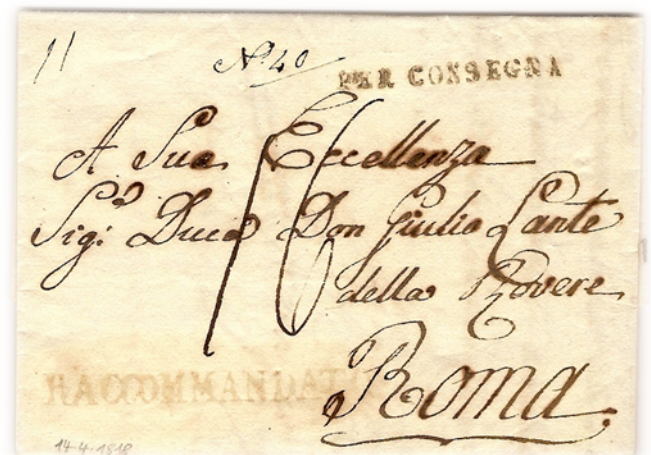 11
No 40
PER CONSEGNA
A Sua Eccellenza
16
Sigr Duca Don Giulio Lante
della Rovere
RACCOMMANDAT
Roma
14-4-1818